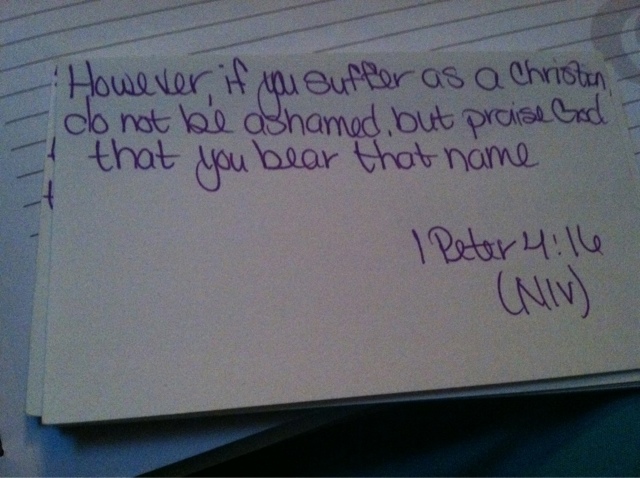 However, if you suffer as a Christian,
do not be ashamed, but praise God
that you bear that name
1 Peter 4:16
(NIV)